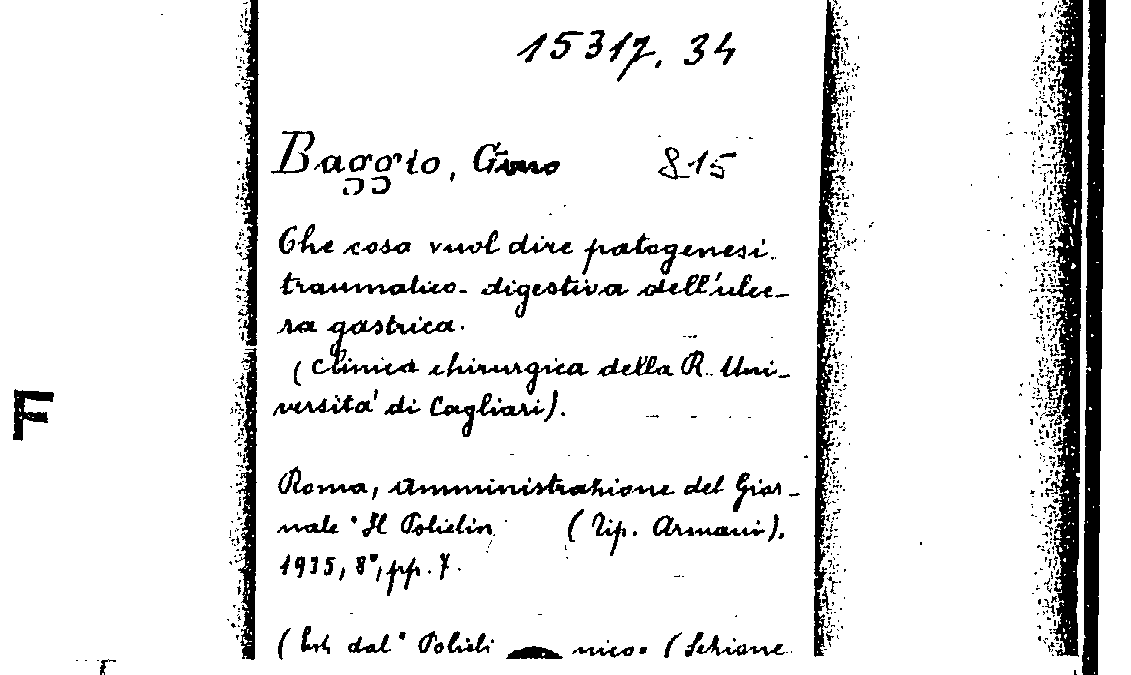 15317.34
Baggio, Gino 815
Che cosa vuol dire patogenesi
traumatico-digestiva dell'ulce-
ra gastrica.
(Clinica chirurgica della R. Uni-
versità di Cagliari).
F
Roma, Amministrazione del Gior-
nale "Il Policlin (Tip. Armani).
1935, 8°, pp. 7.
(Estr. dal "Policli nico" (Sezione